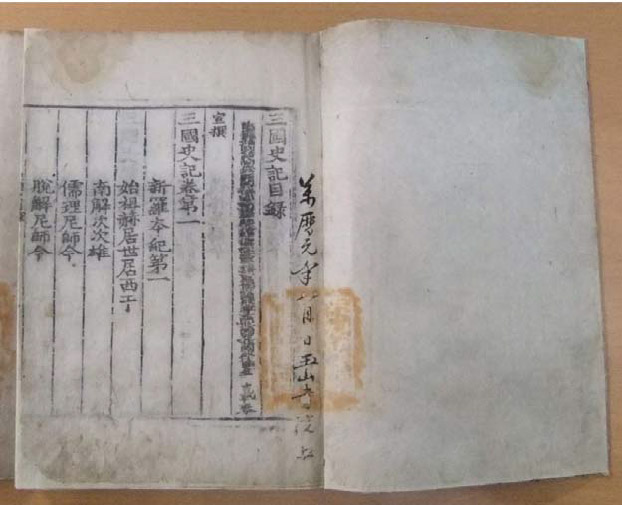 萬曆元年八月日玉山書院上
三國史記目錄
宣撰
三國史記卷第一
新羅本紀第一
始祖赫居世居西干
南解次次雄
儒理尼師今
脫解尼師今